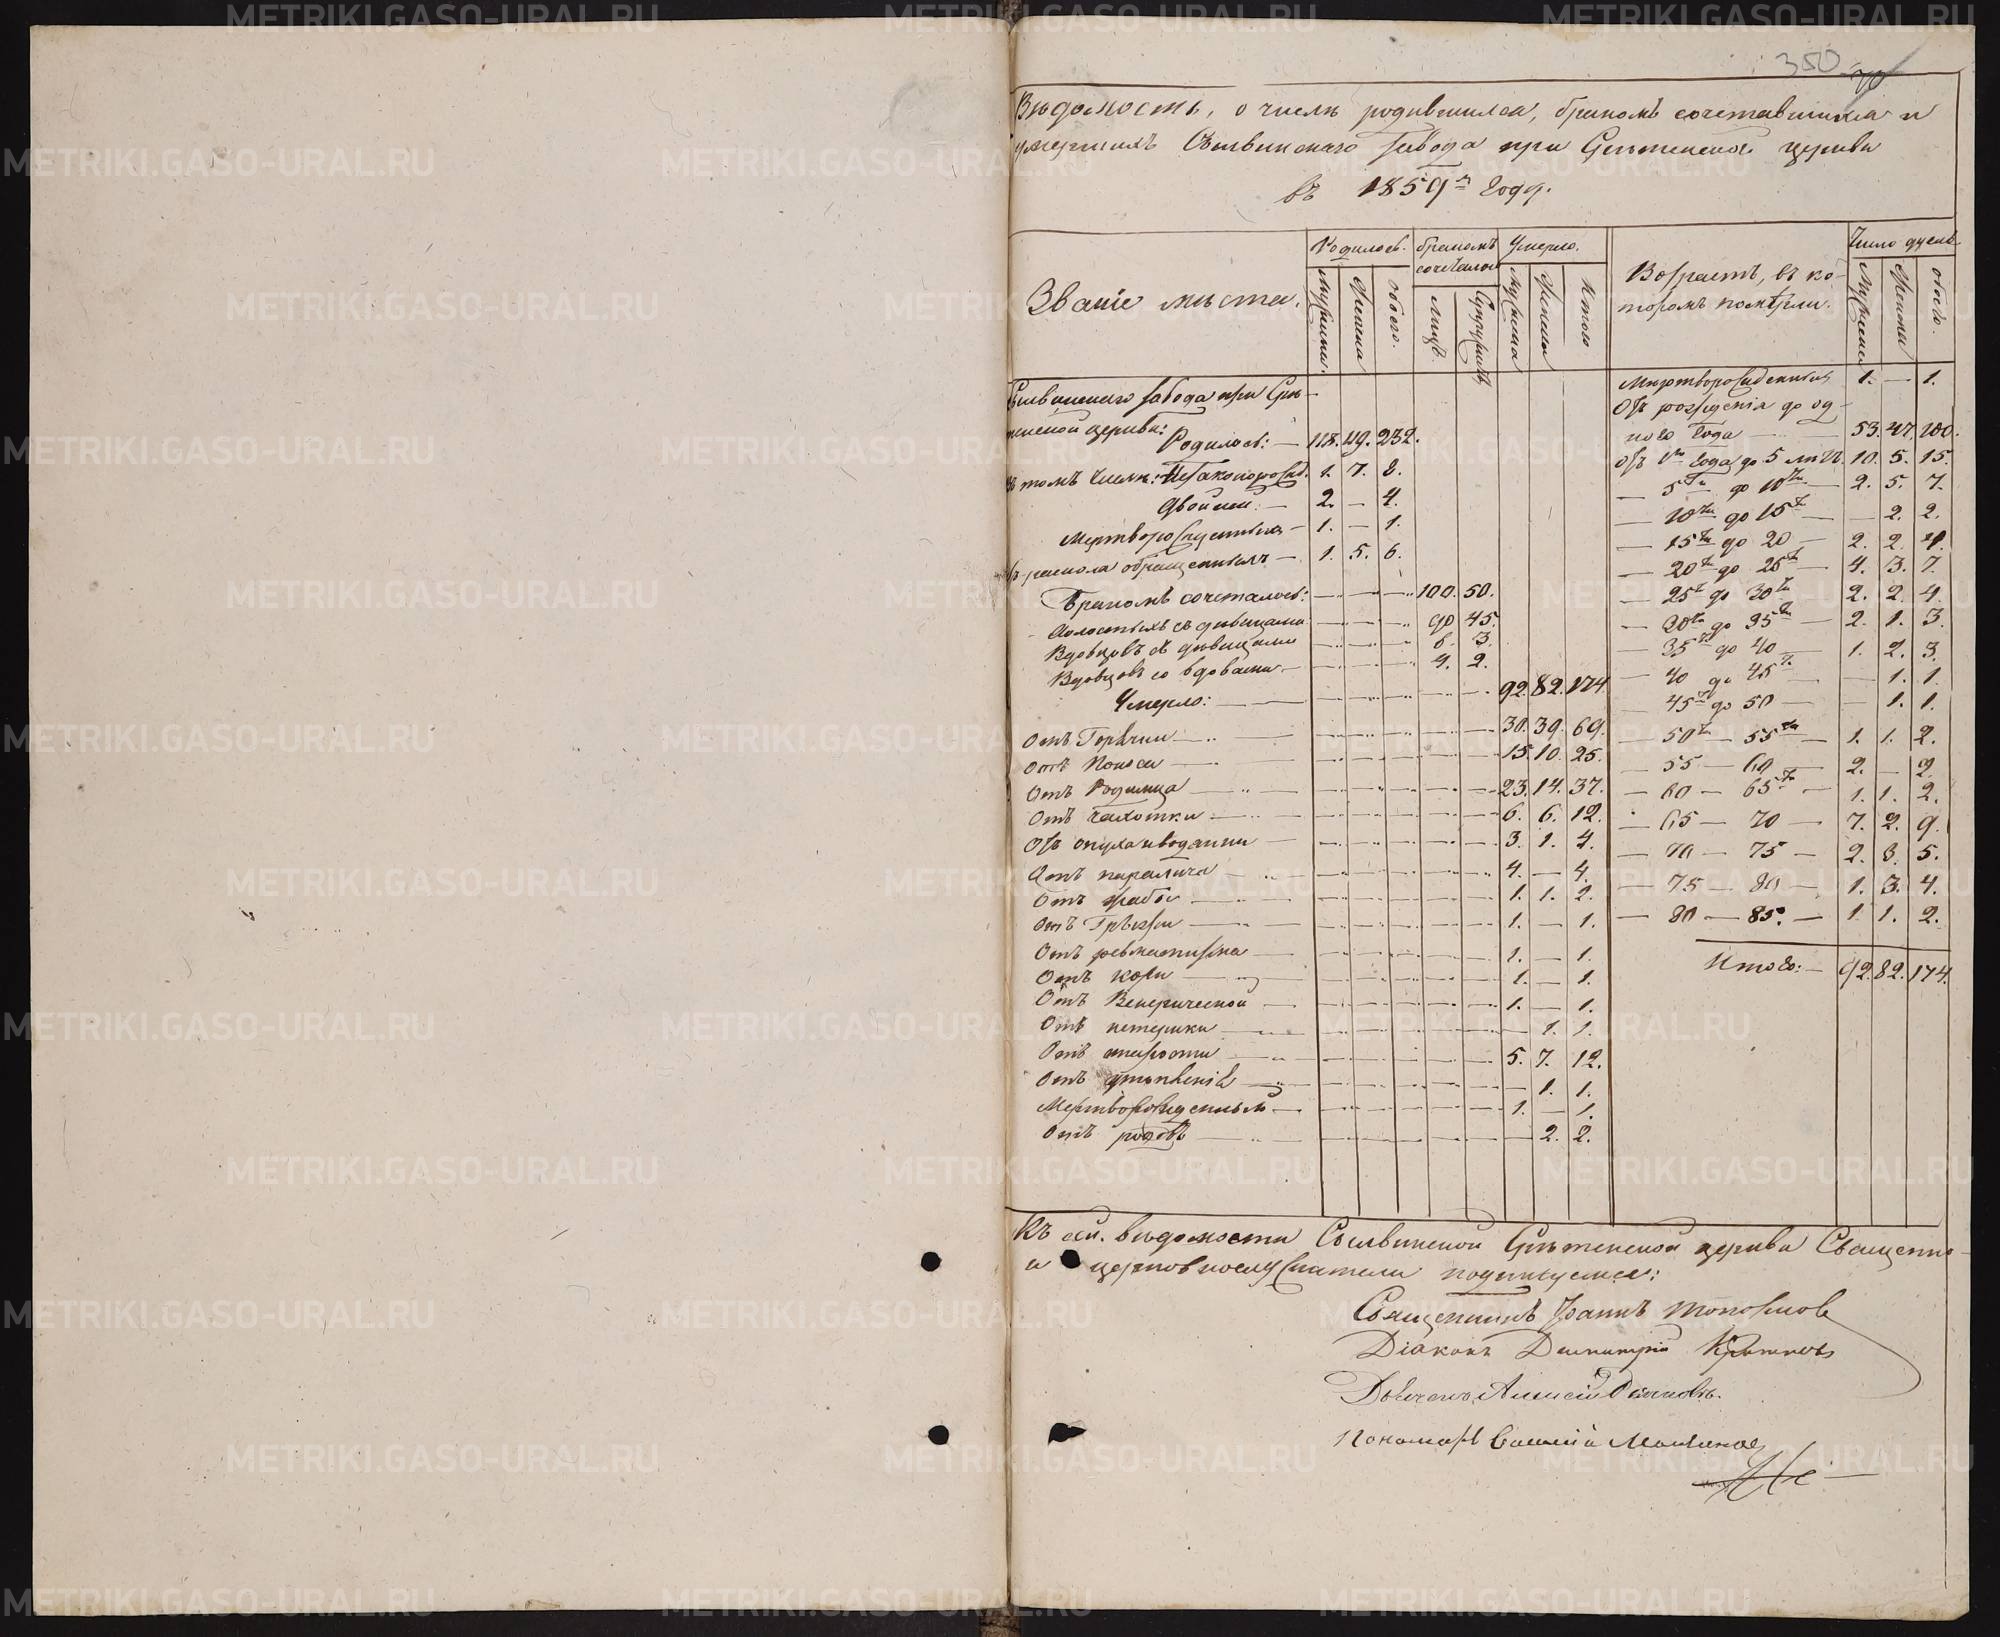 350
Вѣдомость, о числѣ родившихся, бракомъ сочетавшихся и
умершихъ Сылвинскаго завода при Срѣтенской церкви
въ 1859м году.
Званіе мѣста.
Родилось.
бракомъ сочеталось
Умерло.
Возрастъ, въ ко-
торомъ помѣрли.
Число душъ.
Мужска.
Женска
обоего.
лицъ.
Супружествъ
Мужска
Женска
Итого
Мужска
Женска
обоего.
Сылвинскаго завода при Срѣ-
тенской церкви:
Родилось: — 113. 119. 232.
Въ томъ числѣ: Незаконорожд. 1. 7. 8.
Двойней — 2. — 4.
Мертворожденныхъ — 1. — 1.
Изъ раскола обращенныхъ — 1. 5. 6.
Бракомъ сочеталось: 100. 50.
Холостыхъ съ дѣвицами 90 45.
Вдовцовъ съ дѣвицами 6. 3.
Вдовцовъ со вдовами 4. 2.
Умерло: — 92. 82. 174
Отъ Горячки — 30. 39. 69.
Отъ Поноса — 15. 10. 25.
Отъ Родимца — 23. 14. 37.
Отъ Чахотки — 6. 6. 12.
Отъ опуха и водянки — 3. 1. 4.
Отъ паралича — 4. — 4.
Отъ жабы — 1. 1. 2.
Отъ Грыжи — 1. — 1.
Отъ ревматизма — 1. — 1.
Отъ кори — 1. — 1.
Отъ Венерической — 1. — 1.
Отъ истерики — — 1. 1.
Отъ старости — 5. 7. 12.
Отъ утопленія — — 1. 1.
Мертворожденный — 1. — 1.
Отъ родовъ — — 2. 2.
Мертворожденныхъ 1. — 1.
Отъ рожденія до од-
ного года — 53. 47. 100.
Отъ 1го года до 5 лѣтъ. 10. 5. 15.
— 5ти до 10ти — 2. 5. 7.
— 10ти до 15ти — — 2. 2.
— 15ти до 20 — 2. 2. 4.
— 20ти до 25ти — 4. 3. 7.
— 25ти до 30ти — 2. 2. 4.
— 30ти до 35ти — 2. 1. 3.
— 35ти до 40 — 1. 2. 3.
— 40 до 45ти — — 1. 1.
— 45ти до 50 — — 1. 1.
— 50ти — 55ти — 1. 1. 2.
— 55 — 60 — 2. — 2.
— 60 — 65ти — 1. 1. 2.
— 65 — 70 — 7. 2. 9.
— 70 — 75 — 2. 3. 5.
— 75 — 80 — 1. 3. 4.
— 80 — 85. — 1. 1. 2.
Итого: — 92. 82. 174.
Къ сей вѣдомости Сылвинской Срѣтенской церкви Священно-
и церковнослужители подписуемся:
Священникъ Іоаннъ Топорковъ
Діаконъ Димитрій
Дьячекъ Алексій
Пономарь Василій
METRIKI.GASO-URAL.RU